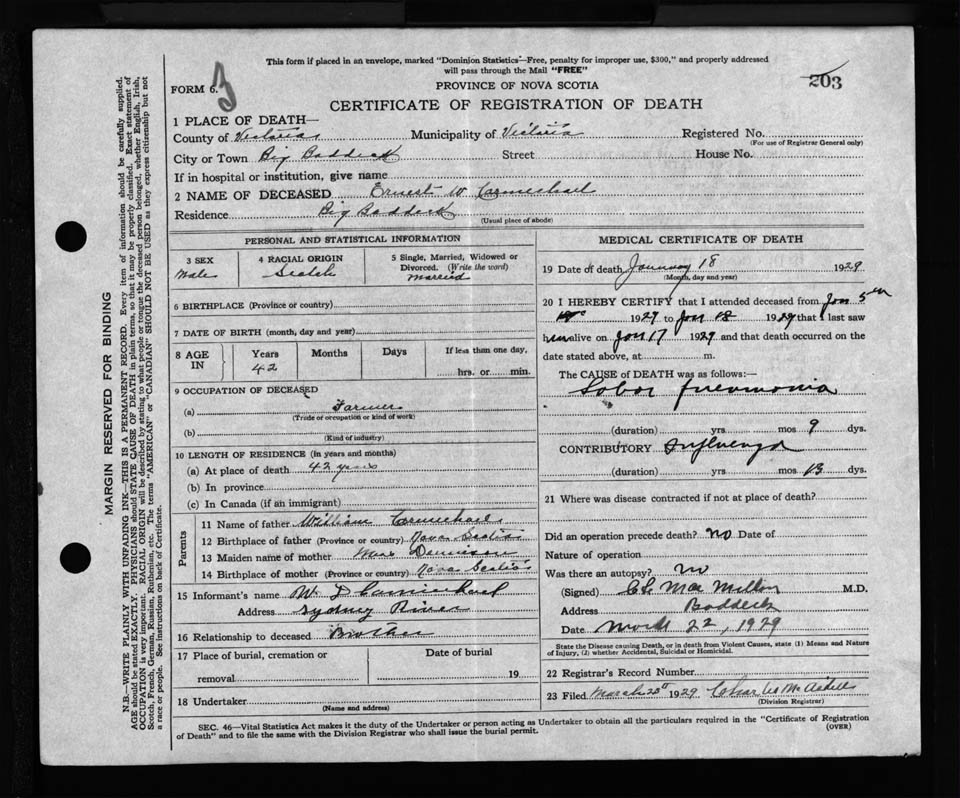 This form if placed in an envelope, marked "Dominion Statistics—Free, penalty for improper use, $300," and properly addressed
will pass through the Mail "FREE"
203
FORM 6.
3
PROVINCE OF NOVA SCOTIA
CERTIFICATE OF REGISTRATION OF DEATH
1 PLACE OF DEATH—
County of Victoria Municipality of Victoria Registered No.
(For use of Registrar General only)
City or Town Big Baddeck Street House No.
If in hospital or institution, give name
2 NAME OF DECEASED Ernest W Carmichael
Residence Big Baddeck
(Usual place of abode)
PERSONAL AND STATISTICAL INFORMATION
3 SEX 4 RACIAL ORIGIN 5 Single, Married, Widowed or
Divorced. (Write the word)
Male Scotch Married
6 BIRTHPLACE (Province or country)
7 DATE OF BIRTH (month, day and year)
8 AGE IN Years Months Days If less than one day,
42 hrs. or min.
9 OCCUPATION OF DECEASED
(a) Farmer
(Trade of occupation or kind of work)
(b)
(Kind of industry)
10 LENGTH OF RESIDENCE (in years and months)
(a) At place of death 42 years
(b) In province
(c) In Canada (if an immigrant)
Parents
11 Name of father William Carmichael
12 Birthplace of father (Province or country) Nova Scotia
13 Maiden name of mother
14 Birthplace of mother (Province or country) Nova Scotia
15 Informant's name W D Carmichael
Address Sydney River
16 Relationship to deceased Brother
17 Place of burial, cremation or Date of burial
removal 19
18 Undertaker
(Name and address)
MEDICAL CERTIFICATE OF DEATH
19 Date of death January 18 1929
(Month, day and year)
20 I HEREBY CERTIFY that I attended deceased from Jan 5th
1929 to Jan 18 1929 that I last saw
him alive on Jan 17 1929 and that death occurred on the
date stated above, at m.
The CAUSE of DEATH was as follows:—
Lobar pneumonia
(duration) yrs mos 9 dys.
CONTRIBUTORY Influenza
(duration) yrs mos 13 dys.
21 Where was disease contracted if not at place of death?
Did an operation precede death? no Date of
Nature of operation
Was there an autopsy? no
(Signed) C L MacMillan M.D.
Address Baddeck
Date March 22, 1929
State the Disease causing Death, or in death from Violent Causes, state (1) Means and Nature
of Injury, (2) whether Accidental, Suicidal or Homicidal.
22 Registrar's Record Number
23 Filed March 1929
(Division Registrar)
SEC. 46—Vital Statistics Act makes it the duty of the Undertaker or person acting as Undertaker to obtain all the particulars required in the "Certificate of Registration
of Death" and to file the same with the Division Registrar who shall issue the burial permit.
(OVER)
MARGIN RESERVED FOR BINDING
N.B.—WRITE PLAINLY WITH UNFADING INK—THIS IS A PERMANENT RECORD. Every item of information should be carefully supplied.
AGE should be stated EXACTLY. PHYSICIANS should STATE CAUSE OF DEATH in plain terms, so that it may be properly classified. Exact statement of
OCCUPATION is very important. RACIAL ORIGIN will be described by stating to what people or tongue the deceased person belonged, whether English, Irish,
Scotch, French, German, Russian, Ruthenian, etc. The terms "AMERICAN" or "CANADIAN" SHOULD NOT BE USED as they express citizenship but not
a race or people. See instructions on back of Certificate.